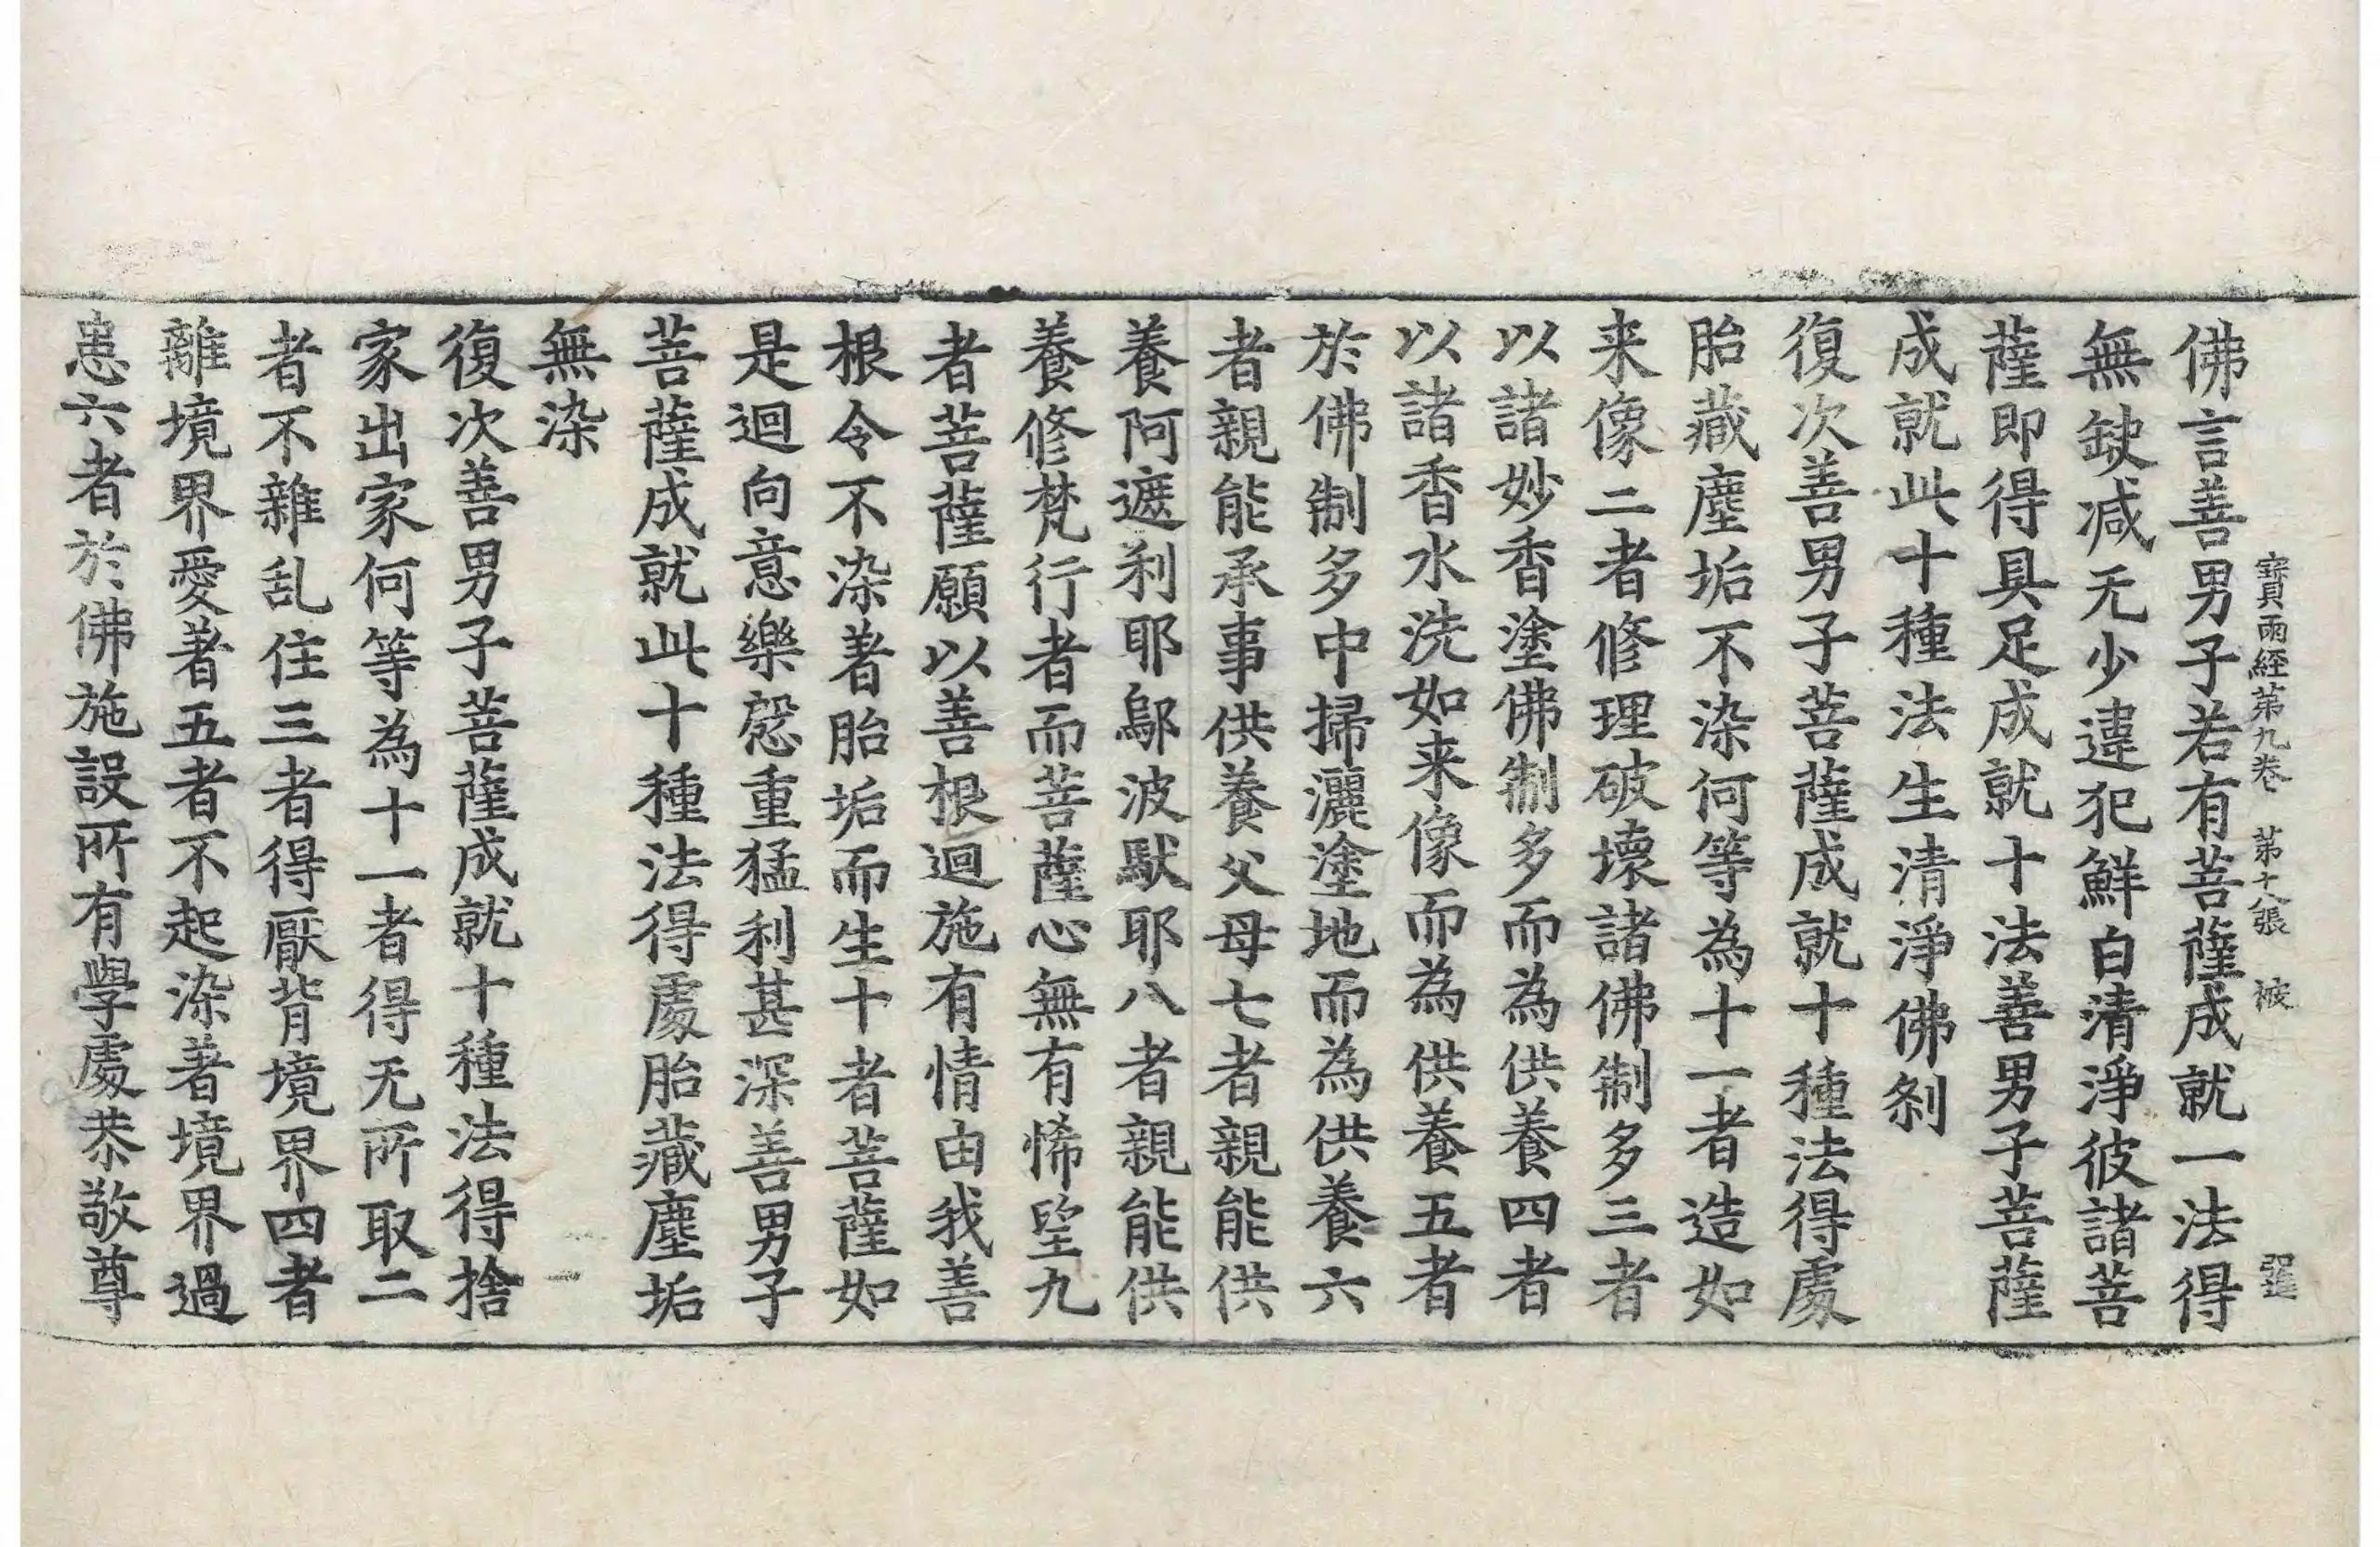 寳雨経苐九卷 苐十八張 被
佛言善男子若有菩薩成就一法得
無䤼减无少違犯鮮白清淨彼諸菩
薩即得具足成就十法善男子菩薩
成就此十種法生清淨佛刹
復次善男子菩薩成就十種法得處
胎藏塵垢不染何等為十一者造如
来像二者修理破壞諸佛制多三者
以諸妙香塗佛制多而為供養四者
以諸香水洗如来像而為供養五者
於佛制多中掃灑塗地而為供養六
者親能承事供養父母七者親能供
養阿遮利耶鄔波馱耶八者親能供
養修梵行者而菩薩心無有悕望九
者菩薩願以善根迴施有情由我善
根令不染著胎垢而生十者菩薩如
是迴向意樂慇重猛利甚深善男子
菩薩成就此十種法得處胎藏塵垢
無染
復次善男子菩薩成就十種法得捨
家出家何等為十一者得无所取二
者不雜乱住三者得厭背境界四者
離境界愛著五者不起染著境界過
患六者於佛施設所有學處恭敬尊